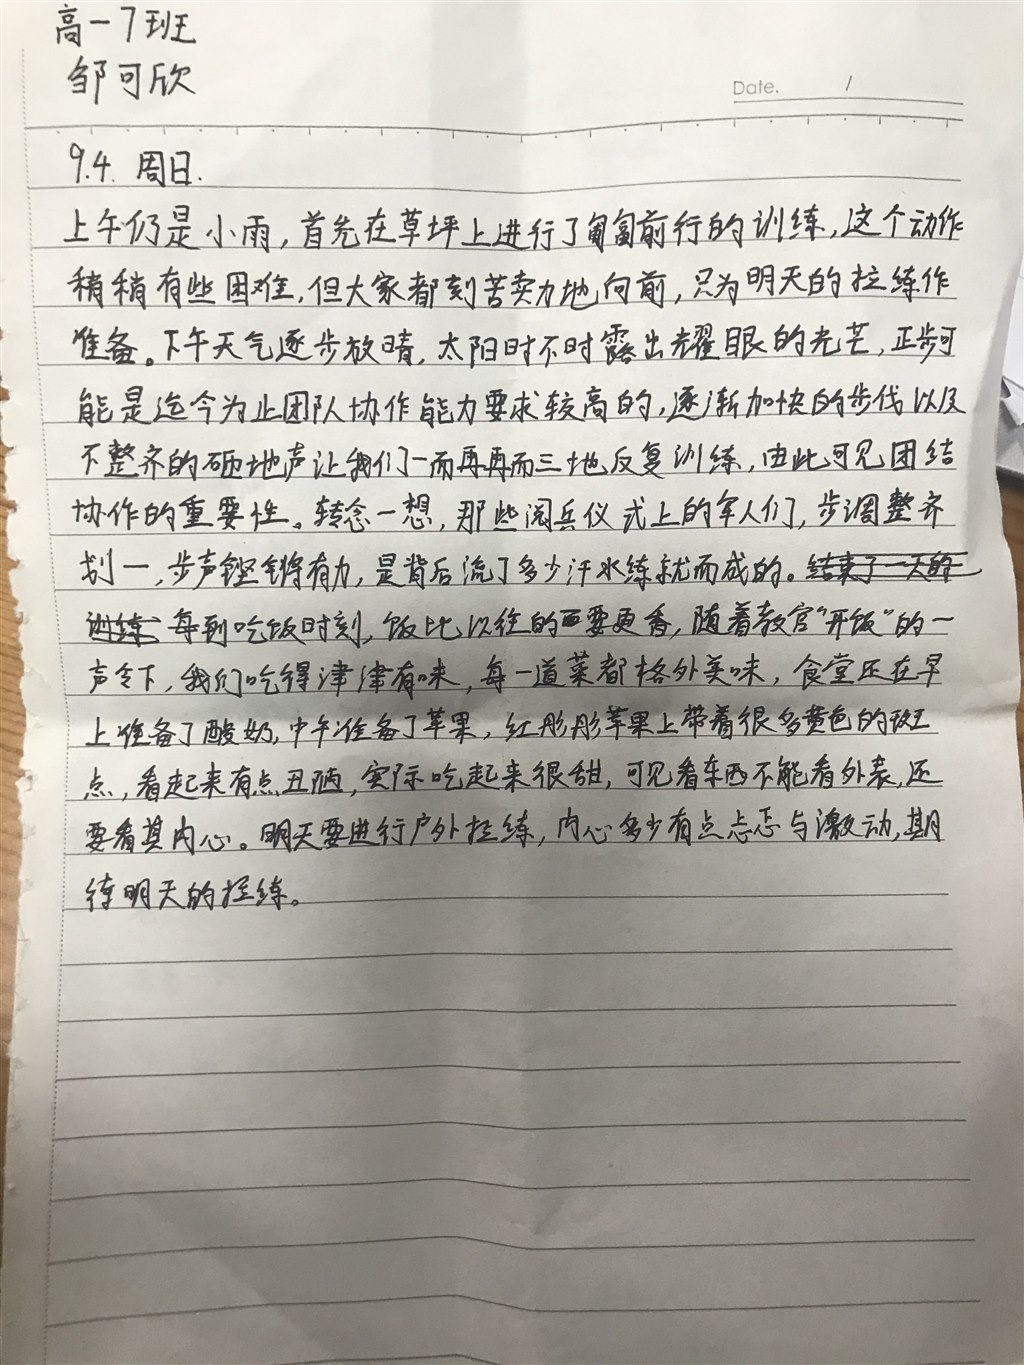 高一7班
邹可欣
Date. /
9.4. 周日.
上午仍是小雨,首先在草坪上进行了匍匐前行的训练,这个动作
稍稍有些困难,但大家都刻苦卖力地向前,只为明天的拉练作
准备。下午天气逐步放晴,太阳时不时露出耀眼的光芒,正步可
能是迄今为止团队协作能力要求较高的,逐渐加快的步伐以及
不整齐的砸地声让我们一而再再而三地反复训练,由此可见团结
协作的重要性。转念一想,那些阅兵仪式上的军人们,步调整齐
划一,步声铿锵有力,是背后流了多少汗水练就而成的。结束了一天的
训练 每到吃饭时刻,饭比以往的要更香,随着教官“开饭”的一
声令下,我们吃得津津有味,每一道菜都格外美味,食堂还在早
上准备了酸奶,中午准备了苹果,红彤彤苹果上带着很多黄色的斑
点,看起来有点丑陋,实际吃起来很甜,可见看东西不能看外表,还
要看其内心。明天要进行户外拉练,内心多少有点忐忑与激动,期
待明天的拉练。